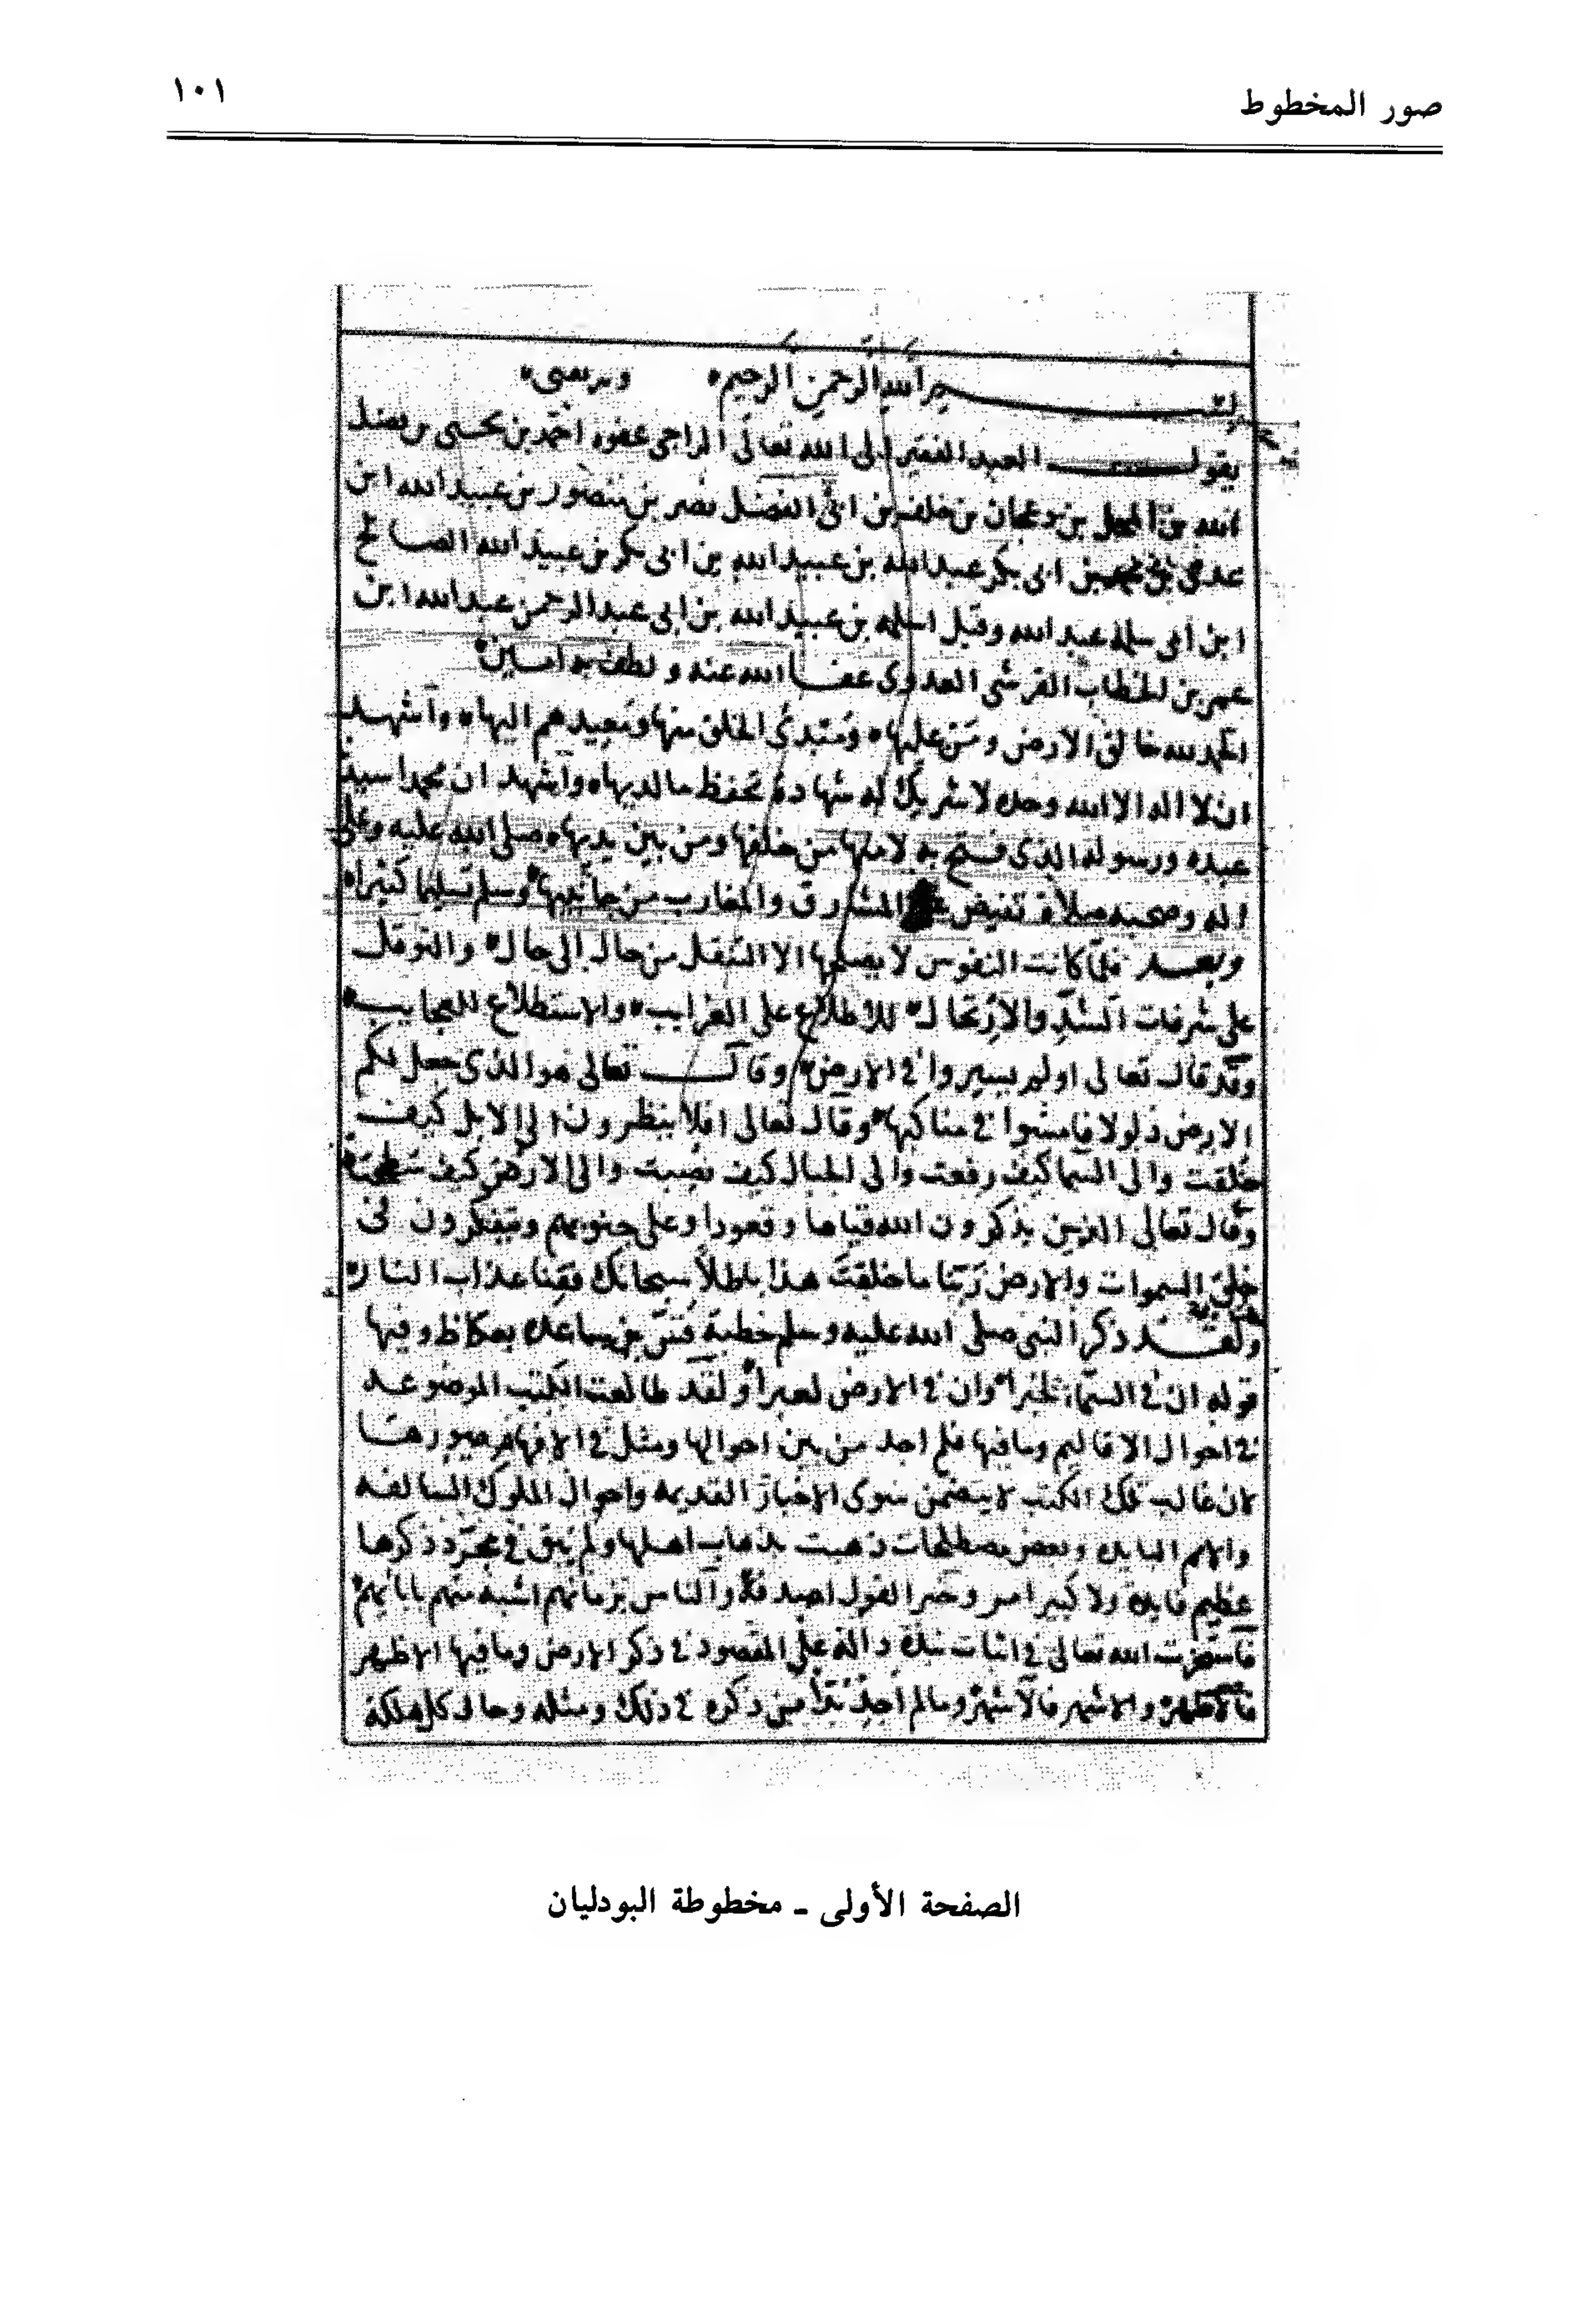 صور المخطوط
١٠١
بسم الله الرحمن الرحيم وبه ثقتي
يقول العبد الفقير الى الله تعالى الراجي عفوه احمد بن يحيى بن فضل
الله بن المجلى بن دعجان بن خلف بن ابى الفضل نصر بن منصور بن عبيد الله ابن
عدى بن محمد بن ابى بكر عبد الله بن عبيد الله بن ابى بكر بن عبيد الله الصالح
ابن أبى سلمة عبد الله وقيل اسلم بن عبيد الله بن ابى عبد الرحمن عبد الله ابن
عمر بن الخطاب القرشى العدوى عفا الله عنه ولطف به امين
الحمد لله خالق الارض ومن عليها ومبتدئ الخلق منها ومعيدهم اليها واشهد
ان لا اله الا الله وحده لا شريك له شهادة تحفظ ما لديها واشهد ان محمدا سيد
عبده ورسوله الذى فتح به لامتها من خلفها ومن بين يديها صلى الله عليه وعلى
اله وصحبه صلاة تفيض المشارق والمغارب من جانبيها وسلم تسليما كثيرا
وبعد فلما كانت النفوس لا يصلحها الا التنقل من حال الى حال والتوقل
على شرفات الشد والارتحال للاطلاع على الغرايب والاستطلاع العجايب
وقد قال تعالى اولم يسيروا في الارض وقال تعالى هو الذى جعل لكم
الارض ذلولا فامشوا في مناكبها وقال تعالى افلا ينظرون الى الابل كيف
خلقت والى السما كيف رفعت والى الجبال كيف نصبت والى الارض كيف سطحت
وقال تعالى الذين يذكرون الله قياما وقعودا وعلى جنوبهم ويتفكرون فى
خلق السموات والارض ربنا ما خلقت هذا باطلا سبحانك فقنا عذاب النار
ولقد ذكر النبى صلى الله عليه وسلم خطبة قس بن ساعدة بعكاظ وفيها
قوله ان في السماء لخبرا وان في الارض لعبرا ولقد طالعت الكتب الموضوعه
في احوال الاقاليم وما فيها فلم اجد من بين احوالها ومثل في الافهام صورها
لان غالب تلك الكتب لا يتضمن سوى الاخبار القديمة واحوال الملوك السالفه
والامم البايده وبعض مصطلحات ذهبت بذهاب اهلها ولم يبق في مجرد ذكرها
عظيم فايدة ولا كبير امر وخير القول اصدقه والناس بزمانهم اشبه منهم بابائهم
فاستخرت الله تعالى في اثبات نبذة دالة على المقصود في ذكر الارض وما فيها الاظهر
فالاظهر والاشهر فالاشهر وما لم اجد بدا من ذكره في ذلك ومثله وحال كل مملكة
الصفحة الأولى ـ مخطوطة البودليان